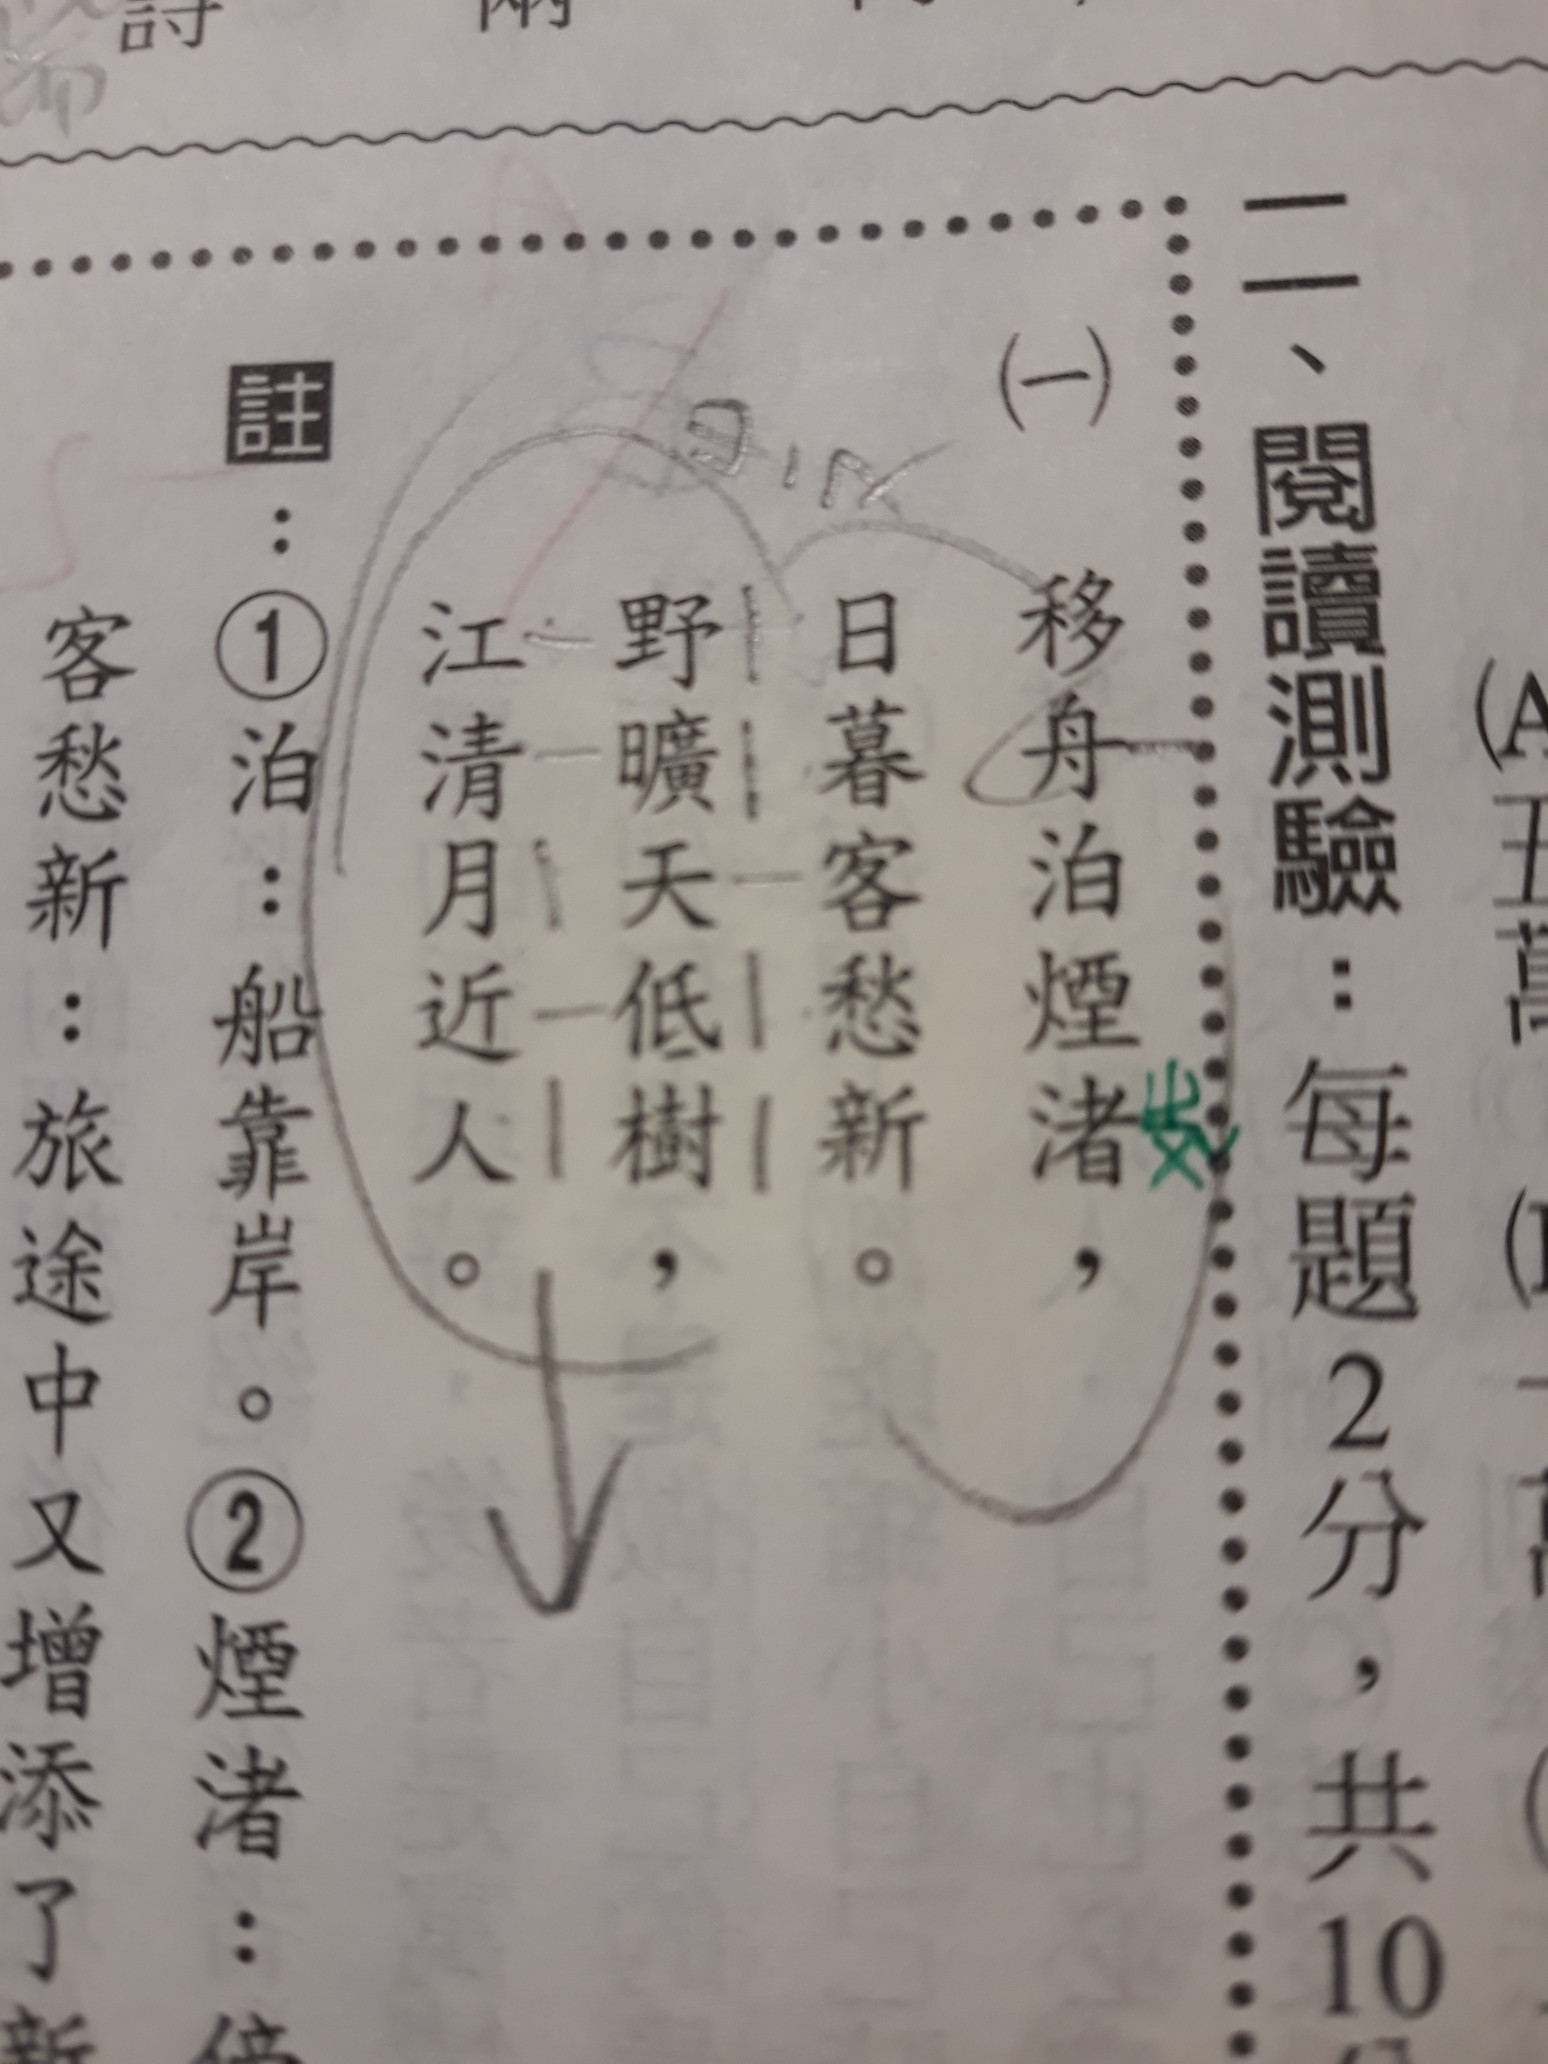 詩
二、閱讀測驗：每題2分，共10
㈠
移舟泊煙渚，
日暮客愁新。
野曠天低樹，
江清月近人。
註：①泊：船靠岸。②煙渚：傍
客愁新：旅途中又增添了新